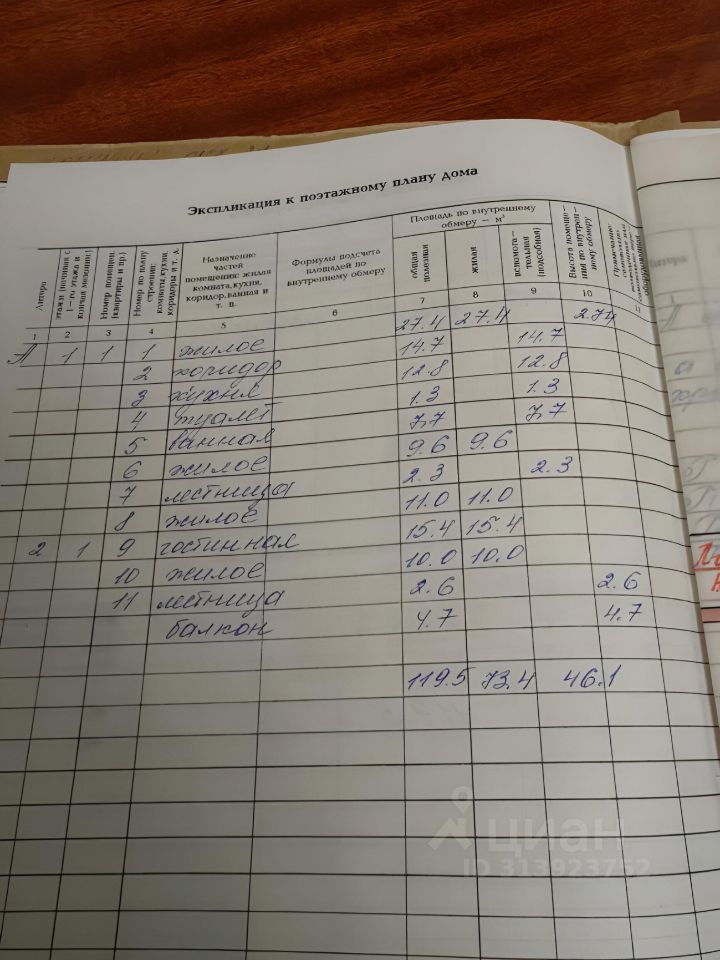 Экспликация к поэтажному плану дома
Литера
этажи (начиная с 1-го этажа и кончая мезонин)
Номер помещен. (квартиры и пр.)
Номер по плану строения: комнаты, кухни, коридоры и т. д.
Назначение частей помещения: жилая комната, кухня, коридор, ванная и т. п.
Формулы подсчета площадей по внутреннему обмеру
Площадь по внутреннему обмеру — м²
общая полезная
жилая
вспомога-тельная (подсобная)
Высота помеще-ния по внутрен-нему обмеру
1 2 3 4 5 6 7 8 9 10 11
1 1 1 жилое 27.4 27.4 2.74
2 коридор 14.7 14.7
3 кухня 12.8 12.8
4 туалет 1.3 1.3
5 ванная 7,7 7,7
6 жилое 9.6 9.6
7 лестница 2.3 2.3
8 жилое 11.0 11.0
2 1 9 гостинная 15.4 15.4
10 жилое 10.0 10.0
11 лестница 2.6 2.6
балкон 4.7 4.7
119.5 73.4 46.1
циан
ID 313923752